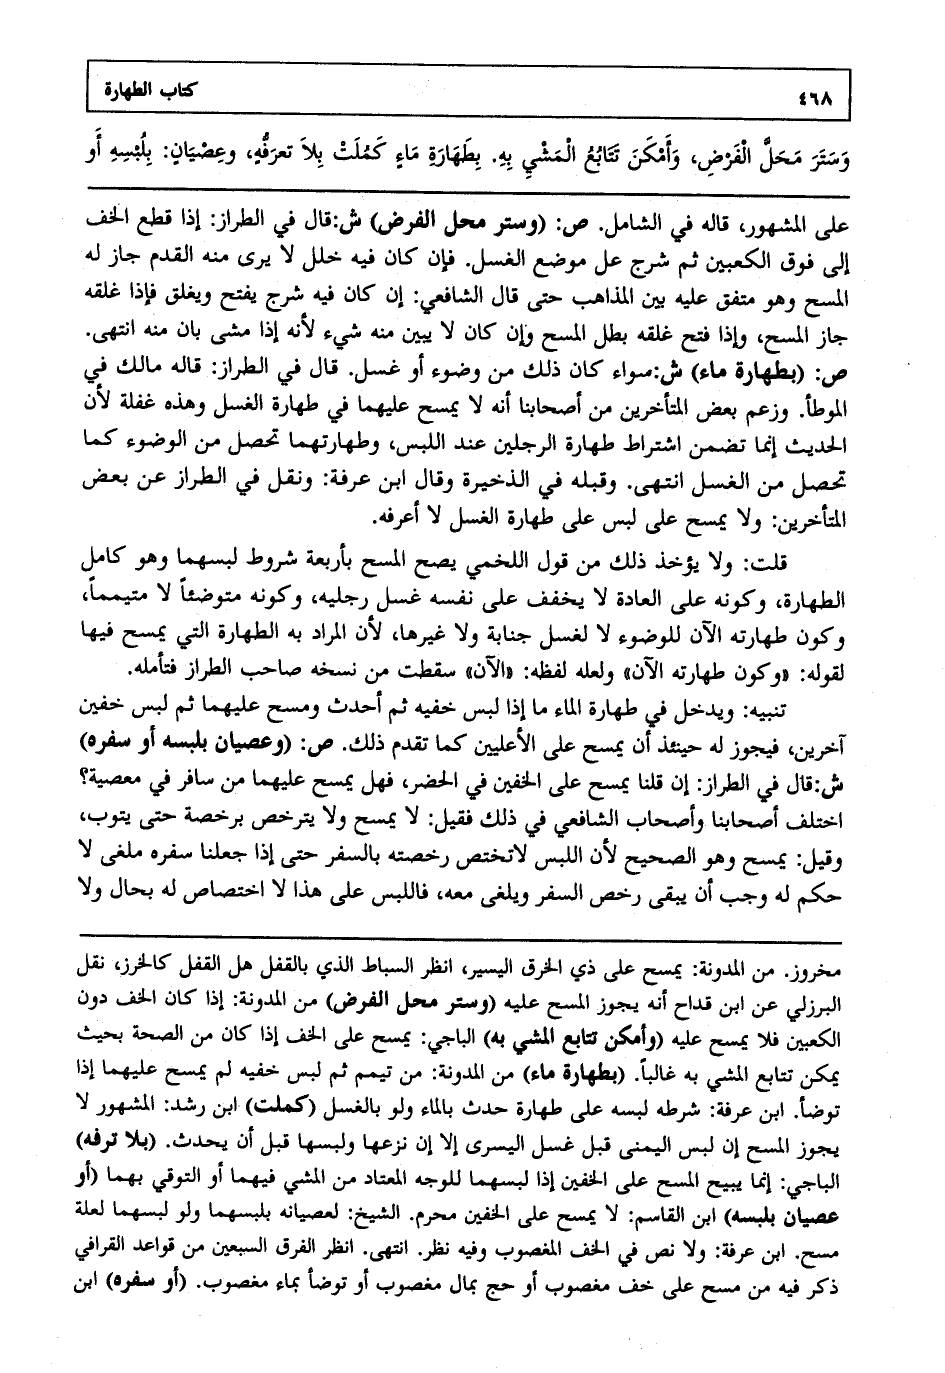 ٤٦٨ كتاب الطهارة
وَسَتَرَ مَحَلَّ الْفَرْضِ، وَأَمْكَنَ تَتَابُعُ الْمَشْيِ بِهِ. بِطَهَارَةِ مَاءٍ كَمُلَتْ بِلاَ تعرَفُّهٍ، وعِصْيَانٍ: بِلُبْسِهِ أَو
على المشهور، قاله في الشامل. ص: (وستر محل الفرض) ش:قال في الطراز: إذا قطع الخف
إلى فوق الكعبين ثم شرج عل موضع الغسل. فإن كان فيه خلل لا يرى منه القدم جاز له
المسح وهو متفق عليه بين المذاهب حتى قال الشافعي: إن كان فيه شرج يفتح ويغلق فإذا غلقه
جاز المسح، وإذا فتح غلقه بطل المسح وإن كان لا يبين منه شيء لأنه إذا مشى بان منه انتهى.
ص: (بطهارة ماء) ش:سواء كان ذلك من وضوء أو غسل. قال في الطراز: قاله مالك في
الموطأ. وزعم بعض المتأخرين من أصحابنا أنه لا يمسح عليهما في طهارة الغسل وهذه غفلة لأن
الحديث إنما تضمن اشتراط طهارة الرجلين عند اللبس، وطهارتهما تحصل من الوضوء كما
تحصل من الغسل انتهى. وقبله في الذخيرة وقال ابن عرفة: ونقل في الطراز عن بعض
المتأخرين: ولا يمسح على لبس على طهارة الغسل لا أعرفه.
قلت: ولا يؤخذ ذلك من قول اللخمي يصح المسح بأربعة شروط لبسهما وهو كامل
الطهارة، وكونه على العادة لا يخفف على نفسه غسل رجليه، وكونه متوضئاً لا متيمماً،
وكون طهارته الآن للوضوء لا لغسل جنابة ولا غيرها، لأن المراد به الطهارة التي يمسح فيها
لقوله: «وكون طهارته الآن» ولعله لفظه: «الآن» سقطت من نسخه صاحب الطراز فتأمله.
تنبيه: ويدخل في طهارة الماء ما إذا لبس خفيه ثم أحدث ومسح عليهما ثم لبس خفين
آخرين، فيجوز له حينئذ أن يمسح على الأعليين كما تقدم ذلك. ص: (وعصيان بلبسه أو سفره)
ش:قال في الطراز: إن قلنا يمسح على الخفين في الحضر، فهل يمسح عليهما من سافر في معصية؟
اختلف أصحابنا وأصحاب الشافعي في ذلك فقيل: لا يمسح ولا يترخص برخصة حتى يتوب،
وقيل: يمسح وهو الصحيح لأن اللبس لاتختص رخصته بالسفر حتى إذا جعلنا سفره ملغى لا
حكم له وجب أن يبقى رخص السفر ويلغى معه، فاللبس على هذا لا اختصاص له بحال ولا
مخروز. من المدونة: يمسح على ذي الخرق اليسير، انظر السباط الذي بالقفل هل القفل كالخرز، نقل
البرزلي عن ابن قداح أنه يجوز المسح عليه (وستر محل الفرض) من المدونة: إذا كان الخف دون
الكعبين فلا يمسح عليه (وأمكن تتابع المشي به) الباجي: يمسح على الخف إذا كان من الصحة بحيث
يمكن تتابع المشي به غالباً. (بطهارة ماء) من المدونة: من تيمم ثم لبس خفيه لم يمسح عليهما إذا
توضأ. ابن عرفة: شرطه لبسه على طهارة حدث بالماء ولو بالغسل (كملت) ابن رشد: المشهور لا
يجوز المسح إن لبس اليمنى قبل غسل اليسرى إلا إن نزعها ولبسها قبل أن يحدث. (بلا ترفه)
الباجي: إنما يبيح المسح على الخفين إذا لبسهما للوجه المعتاد من المشي فيهما أو التوقي بهما (أو
عصيان بلبسه) ابن القاسم: لا يمسح على الخفين محرم. الشيخ: لعصيانه بلبسهما ولو لبسهما لعلة
مسح. ابن عرفة: ولا نص في الخف المغصوب وفيه نظر. انتهى. انظر الفرق السبعين من قواعد القرافي
ذكر فيه من مسح على خف مغصوب أو حج بمال مغصوب أو توضأ بماء مغصوب. (أو سفره) ابن